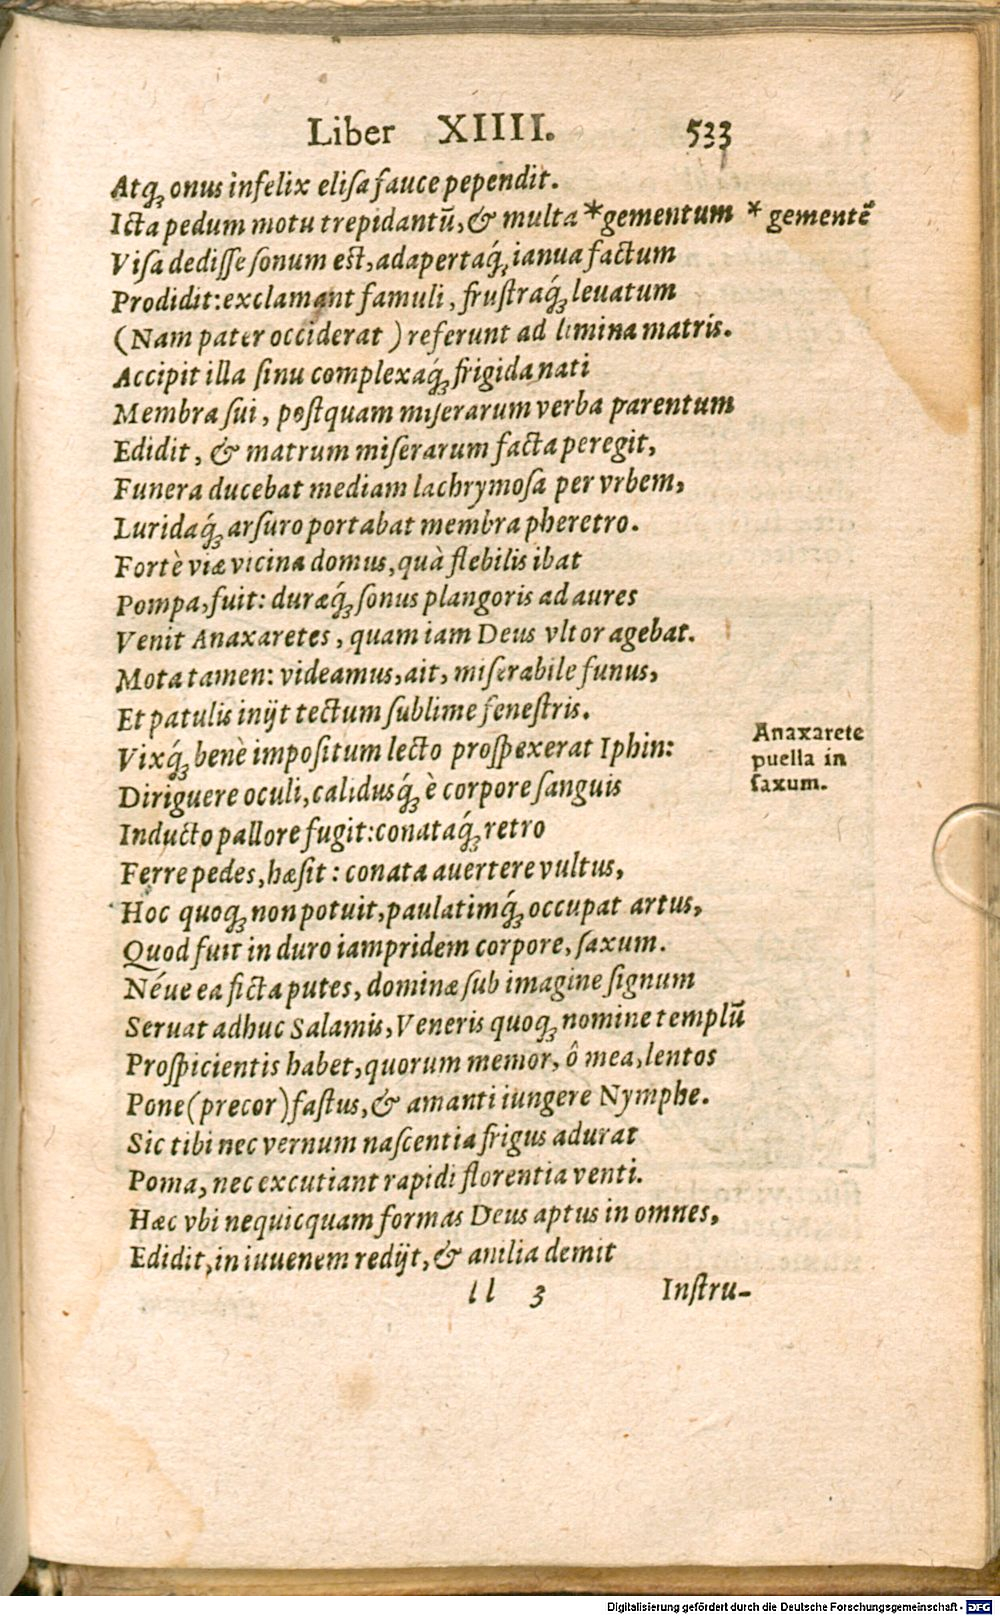 Liber XIIII. 533
Atq́ꝫ onus infelix elisa fauce pependit.
Icta pedum motu trepidantū, & multa *gementum * gementē
Visa dedisse sonum est, adapertaq́ꝫ ianua factum
Prodidit: exclamant famuli, frustraq́ꝫ leuatum
(Nam pater occiderat ) referunt ad limina matris.
Accipit illa sinu complexaq́ꝫ frigida nati
Membra sui, postquam miserarum verba parentum
Edidit, & matrum miserarum facta peregit,
Funera ducebat mediam lachrymosa per vrbem,
Luridaq́ꝫ arsuro portabat membra pheretro.
Fortè viæ vicina domus, quà flebilis ibat
Pompa, fuit: duræq́ꝫ sonus plangoris ad aures
Venit Anaxaretes, quam iam Deus vltor agebat.
Mota tamen: videamus, ait, miserabile funus,
Et patulis inijt tectum sublime fenestris.
Vixq́ꝫ benè impositum lecto prospexerat Iphin:
Anaxarete
puella in
saxum.
Diriguere oculi, calidusq́ꝫ è corpore sanguis
Inducto pallore fugit: conataq́ꝫ retro
Ferre pedes, hæsit: conata auertere vultus,
Hoc quoqꝫ non potuit, paulatimq́ꝫ occupat artus,
Quod fuit in duro iampridem corpore, saxum.
Néue ea ficta putes, dominæ sub imagine signum
Seruat adhuc Salamis, Veneris quoqꝫ nomine templū
Prospicientis habet, quorum memor, ô mea, lentos
Pone (precor) fastus, & amanti iungere Nymphe.
Sic tibi nec vernum nascentia frigus adurat
Poma, nec excutiant rapidi florentia venti.
Hæc vbi nequicquam formas Deus aptus in omnes,
Edidit, in iuuenem redijt, & anilia demit
ll 3 Instru-
Digitalisierung gefördert durch die Deutsche Forschungsgemeinschaft - DFG